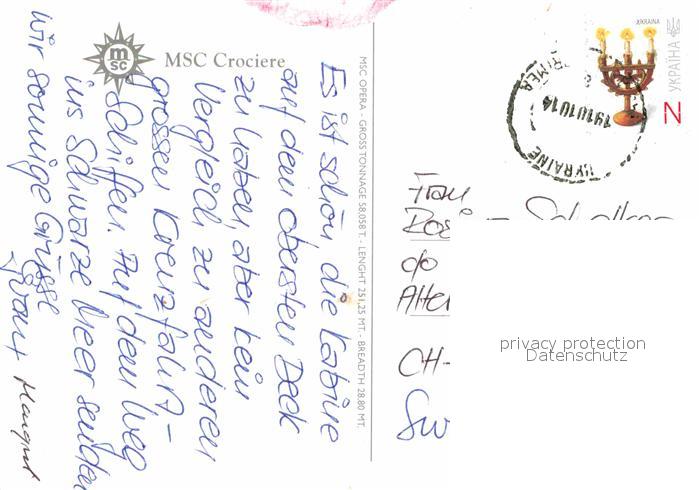 MSC Crociere
Es ist schön die Kabine
auf dem obersten Deck
zu haben, aber kein
Vergleich zu anderen
grossen Kreuzfahrt-
Schiffen. Auf dem Weg
ins Schwarze Meer senden
wir sonnige Grüsse
Margrit
MSC OPERA - GROSS TONNAGE 58.058 T. - LENGHT 251,25 MT. - BREADTH 28,80 MT.
УКРАЇНА
N
UKRAINE
191010 14
Frau
c/o
CH-
privacy protection
Datenschutz